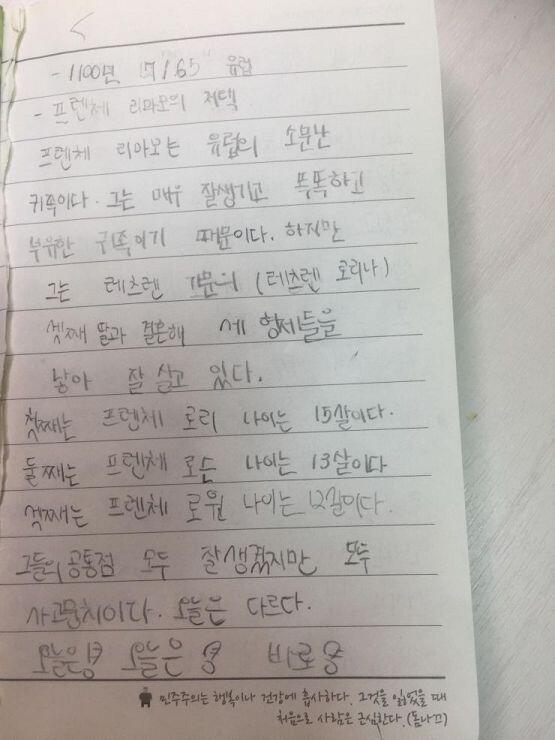 - 1100년 유럽
- 프렌체 리아모의 저택
프렌체 리아모는 유럽의 소문난
귀족이다. 그는 매우 잘생기고 똑똑하고
부유한 귀족이기 때문이다. 하지만
그는 레츠렌 가문의 (레츠렌 로리나)
셋째 딸과 결혼해 세 형제들을
낳아 잘 살고 있다.
첫째는 프렌체 로리 나이는 15살이다.
둘째는 프렌체 로든 나이는 13살이다
셋째는 프렌체 로원 나이는 12살이다.
그들의 공통점 모두 잘생겼지만 모두
사고뭉치이다. 오늘은 다르다.
오늘은 오늘은 바로
민주주의는 행복이나 건강에 흡사하다. 그것을 잃었을 때
처음으로 사람은 근심한다. (돔나끄)